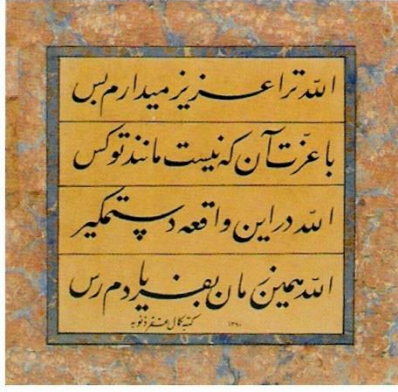 الله ترا عزیز میدارم بس
با عزت آن که نیست مانند تو کس
الله در این واقعه دستم گیر
الله همین زمان بفریادم رس
کتبه کمال غفر ذنوبه